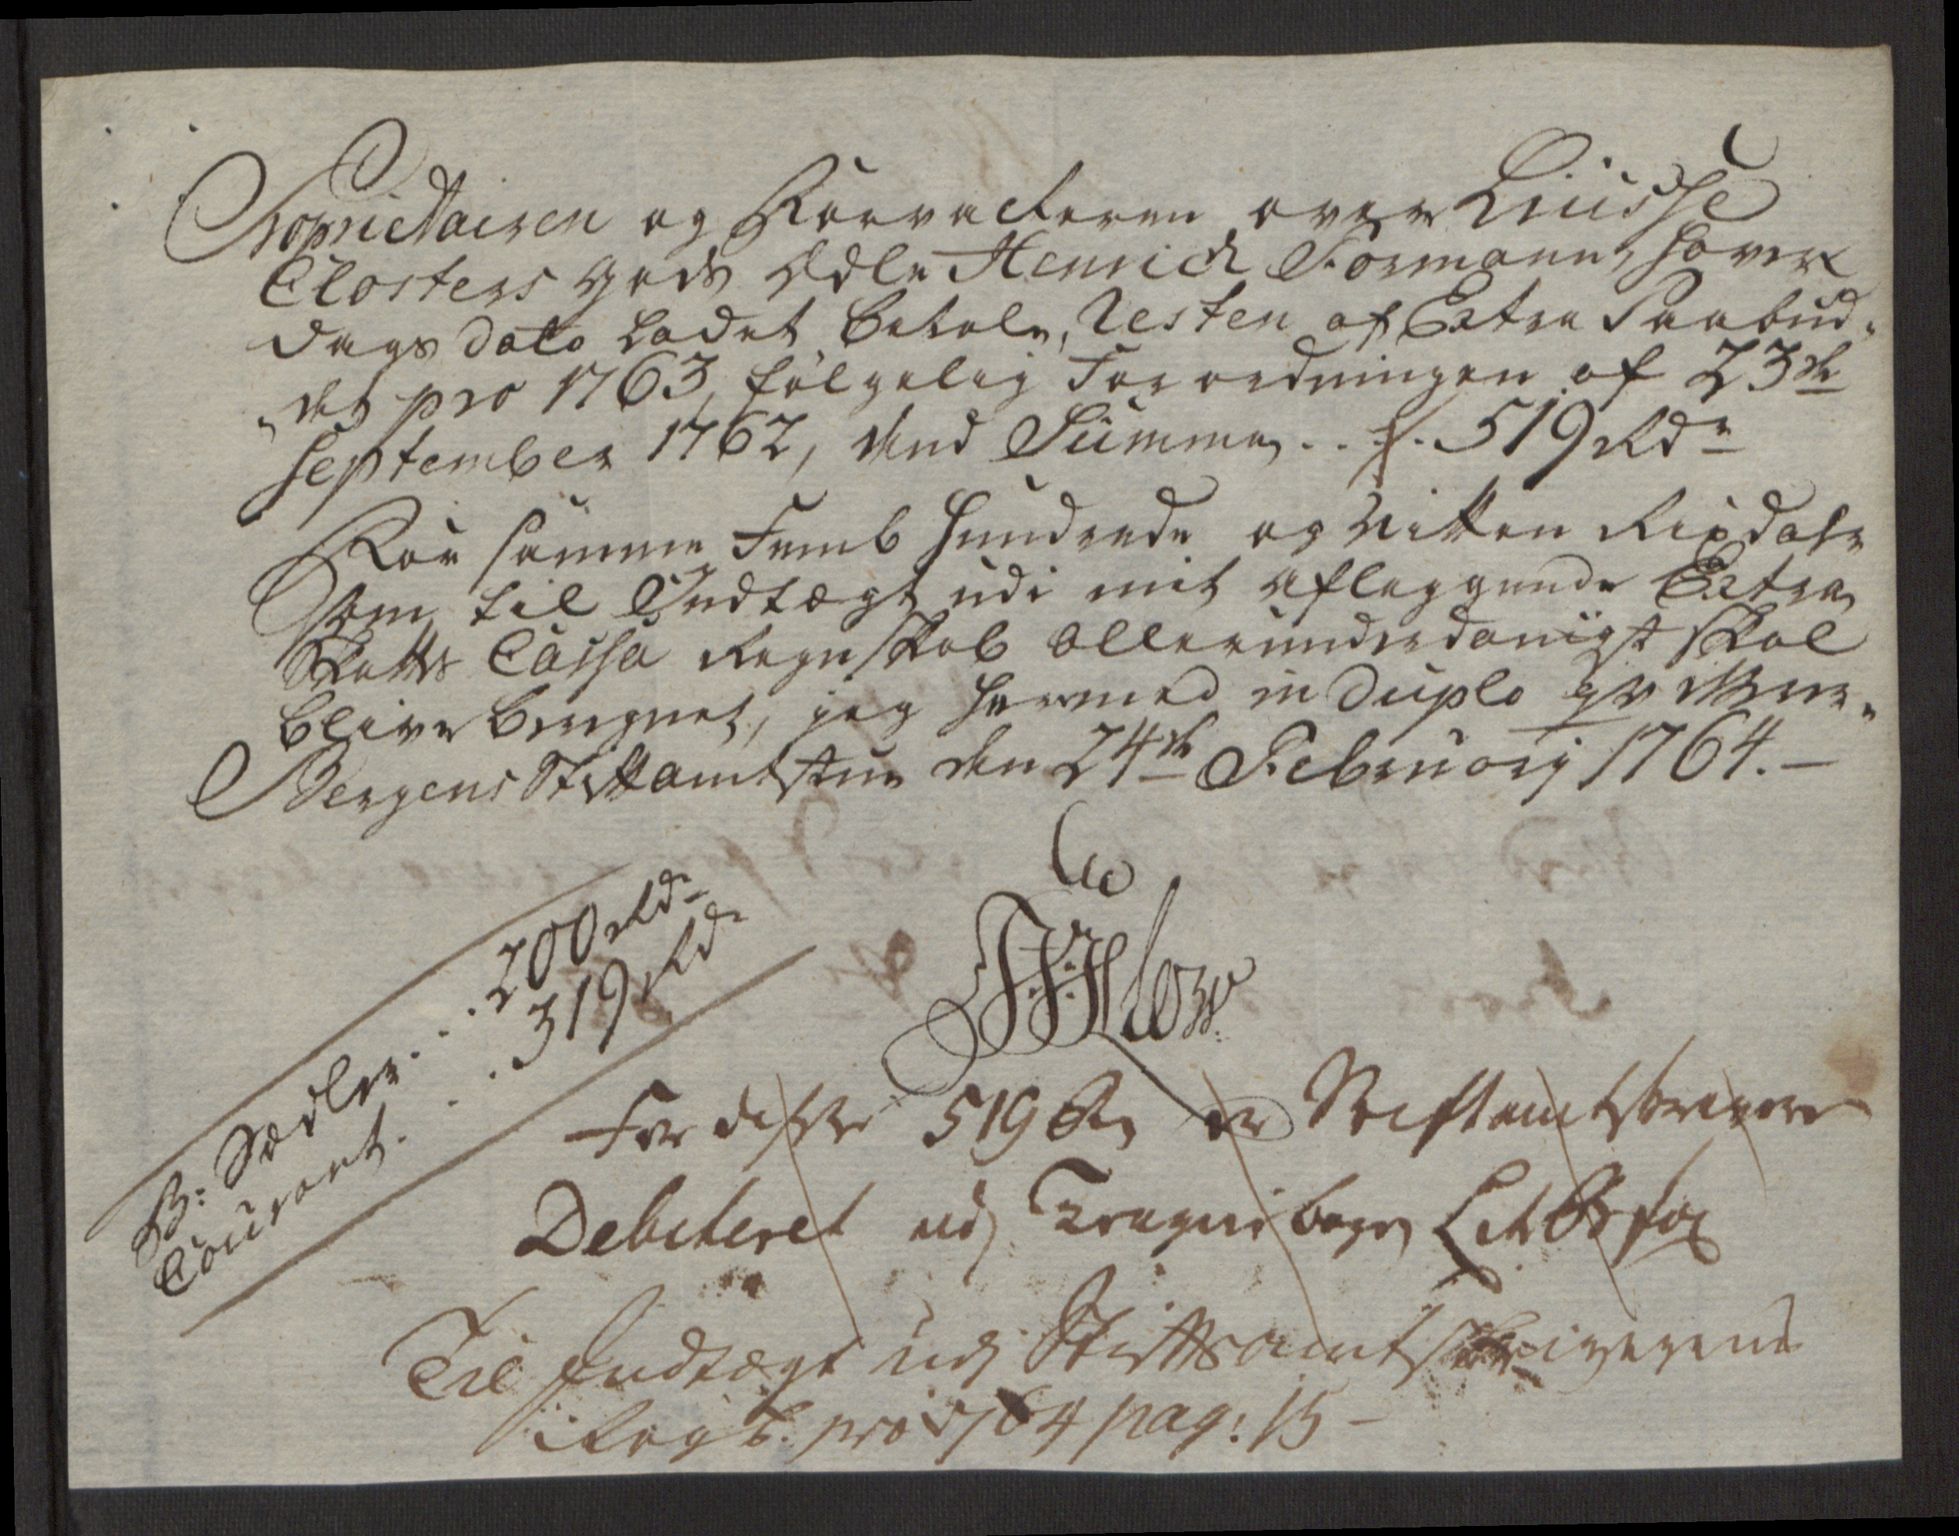 Proprietairen og Forvalteren over Liusse
Closters gods Edle Henrich Formann, haver
dags dato ladet betale, Resten af Extra Paabud-
det pro 1763, følgelig Forordningen af 23de
September 1762, dend Summa . . . 519 Rdr
For samme Femb hundrede og Nitten Rixdaler
som til Indtægt udi mit aflæggende Extra
Skatts Cassa Regnskab allerunderdanigst skal
blive beregnet, jeg hermed in duplo qvitterer.
Bergens Stiftamtstue den 24de Februarij 1764.
B: Sedler . . . 200 Rdr
Courant . . . 319 Rdr
For disse 519 Rd er Stiftamtskriveren
Debiteret udj bogen Lit
Til Indtægt udj Stiftsamtskriverens
Regsk. pro 1764 pag: 15